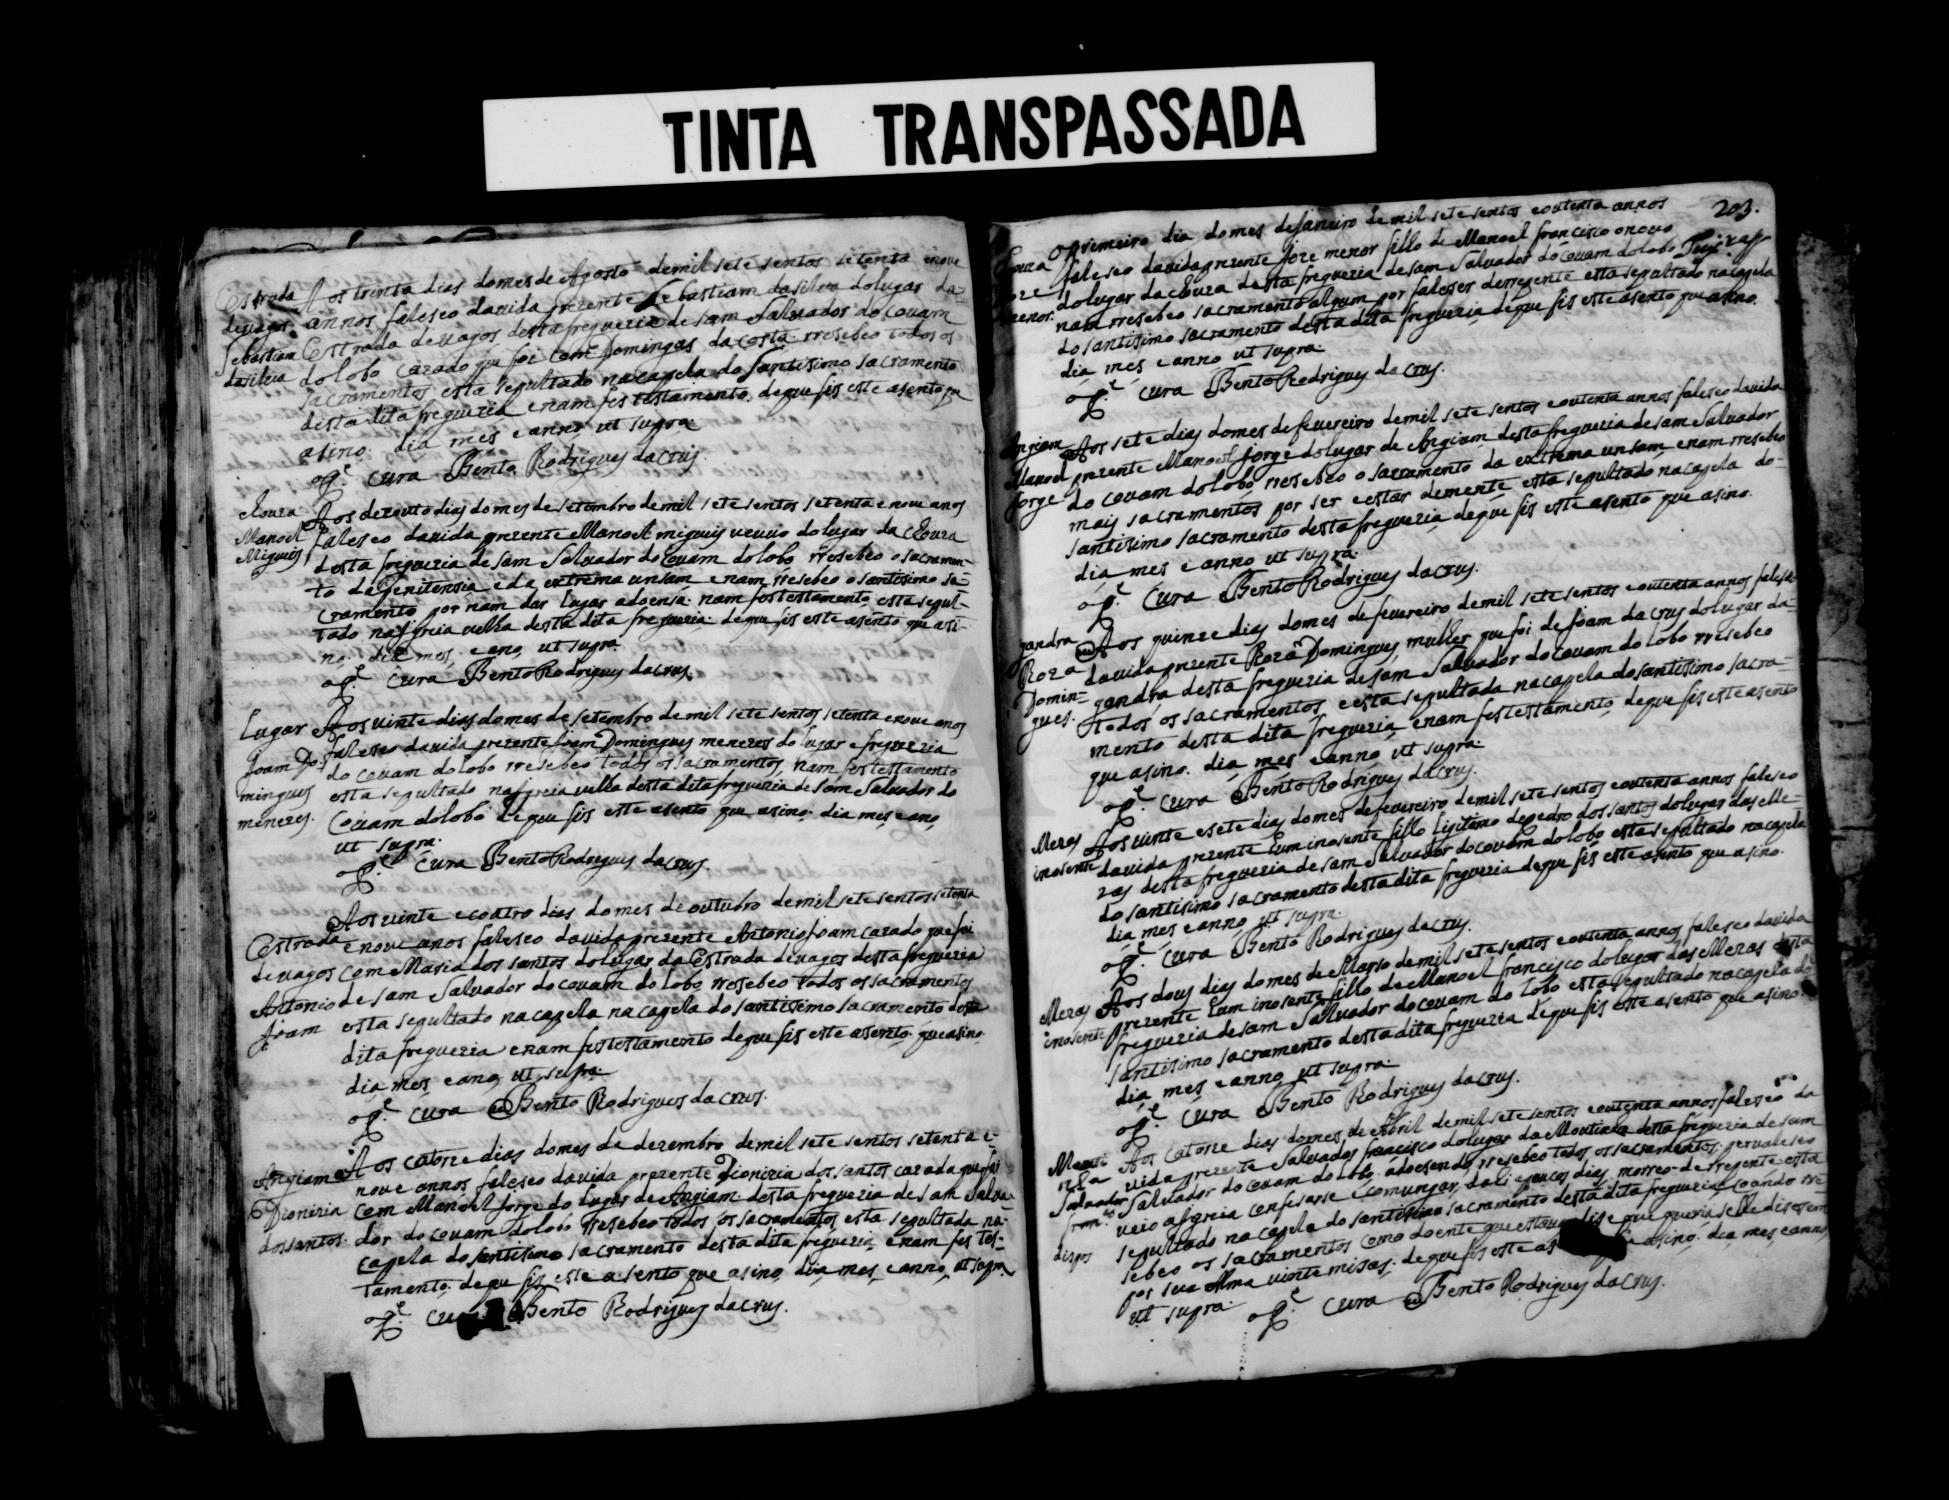 TINTA TRANSPASSADA
Costrada
de vagos
Sebastiam
da silva
Aos trinta dias do mes de Agosto de mil sete sentos setenta e nove
annos faleseo da vida prezente Sebastiam da silva do lugar da
Costrada de vagos desta freguezia de sam Salvador do Covam
do lobo cazado que foi com Domingas da costa rresebeo todos os
sacramentos esta sepultado na capela do santisimo sacramento
desta dita freguezia e nam fes testamento de que fis este asento que
asino dia mes e anno ut supra
o P.e Cura Bento Rodrigues da Crus.
Chouza
Manoel
Migueis
Aos dezouto dias do mes de setembro de mil sete sentos setenta e nove anos
faleseo da vida prezente Manoel migueis veuvo do lugar da Choúza
desta freguezia de sam Salvador do Covam do lobo rresebeo o sacramen-
to da penitensia e da extrema unsam e nam rresebeo o santisimo sa-
cramento por nam dar lugar a doensa. nam fes testamento esta sepul-
tado na Igreia velha desta dita freguezia. de que fis este asento que asi-
no. dia mes, e ano, ut supra
o P.e Cura Bento Rodrigues da Crus.
Lugar
Joam Do-
mingues
menezes.
Aos vinte dias do mes de setembro de mil sete sentos setenta e nove anos
faleseo da vida prezente Joam Domingues menezes do lugar e freguezia
do covam do lobo rresebeo todos os sacramentos, nam fes testamento
esta sepultado na Igreia velha desta dita freguezia de sam Salvador do
Covam do lobo de que fis este asento que asino. dia mes, e ano,
ut supra.
o P.e Cura Bento Rodrigues da Crus.
Costrada
de vagos
Antonio
Joam
Aos vinte e coatro dias do mes de outubro de mil sete sentos setenta
e nove anos faleseo da vida prezente Antonio Joam cazado que foi
com Maria dos santos do lugar da Costrada de vagos desta freguezia
de sam Salvador do covam do lobo, rresebeo todos os sacramentos
esta sepultado na capela na capela do santissimo sacramento desta
dita freguezia e nam fes testamento de que fis este asento que asino.
dia, mes, e ano, ut supra.
o P.e Cura Bento Rodrigues da Crus.
Angiam
Dionizia
dos santos.
Aos catorze dias do mes de dezembro de mil sete sentos setenta e-
nove annos faleseo da vida prezente Dionizia dos santos cazada que foi
com Manoel Jorge do lugar de Angiam desta freguezia de sam Salva-
dor do covam do lobo rresebeo todos os sacramentos esta sepultada na
capela do santisimo sacramento desta dita freguezia e nam fes tes-
tamento. de que fis este asento que asino, dia, mes, e anno, ut supra
o P.e Bento Rodrigues da Crus.
203.
Choúza
Joze
menor.
O primeiro dia do mes de Janeiro de mil sete sentos e outenta annos
faleseo da vida prezente Joze menor fillo de Manoel francisco o novo
do lugar da Choúza desta freguezia de sam Salvador do covam do lobo
nam rresebeo sacramento algum por faleser derrepente esta sepultado na capela
do santisimo sacramento desta dita freguezia de que fis este asento que asino.
dia, mes, e anno, ut supra.
o P.e Cura Bento Rodrigues da Crus.
Angiam
Manoel
Jorge
Aos sete dias do mes de fevereiro de mil sete sentos e outenta annos faleseo da vida
prezente Manoel Jorge do lugar de Angiam desta freguezia de sam Salvador
do covam do lobo, rresebeo o sacramento da extrema unsam, e nam rresebeo
mais sacramentos por ser e estar demente esta sepultado na capela do-
santisimo sacramento desta freguezia de que fis este asento que asino.
dia, mes e anno ut supra.
o P.e Cura Bento Rodrigues da Crus.
gandra
Roza
Domin-
gues.
Aos quinze dias do mes de fevereiro de mil sete sentos e outenta annos faleseo
da vida prezente Roza Domingues mulher que foi de Joam da Crus do lugar da-
gandra, desta freguezia de sam Salvador do covam do lobo rresebeo
todos os sacramentos e esta sepultada na capela do santissimo sacra
mento desta dita freguezia, e nam fes testamento de que fis este asento
que asino. dia, mes e anno ut supra.
o P.e Cura Bento Rodrigues da Crus.
Mezas
inosente
Aos vinte e sete dias do mes de fevereiro de mil sete sentos e outenta annos faleseo
da vida prezente hum inosente fillo ligitimo de pedro dos santos do lugar das Me-
zas desta freguezia de sam Salvador do covam do lobo, esta sepultado na capela
do santisimo sacramento desta dita freguezia de que fis este asento que asino.
dia mes e anno, ut supra.
o P.e Cura Bento Rodrigues da Crus.
Mezas
inosente
Aos dous dias do mes de Marso de mil sete sentos e outenta annos faleseo da vida
prezente hum inosente fillo de Manoel francisco do lugar das Mezas desta
freguezia de sam Salvador do covam do lobo esta sepultado na capela do
santisimo sacramento desta dita freguezia de que fis este asento que asino
dia mes e anno, ut supra.
o P.e Cura Bento Rodrigues da Crus.
Mouti
nha
Salvador
fran.co
Aos Catorze dias do mes de Abril de mil sete sentos e outenta annos faleseo da
vida prezente Salvador francisco do lugar da Moutinha desta freguezia de sam
Salvador do covam do lobo, adoesendo, rresebeo todos os sacramentos.
veio a Igreia confesarse e comungar, dali a poucos dias, morreo de rrepente esta
sepultado na capela do santisimo sacramento desta dita freguezia, coando rre-
sebeo os sacramentos como doente que estava dise que queria se lhe disesem
por sua Alma vinte misas. de que fis este asino. dia, mes e anno
ut supra.
o P.e Cura Bento Rodrigues da Crus.